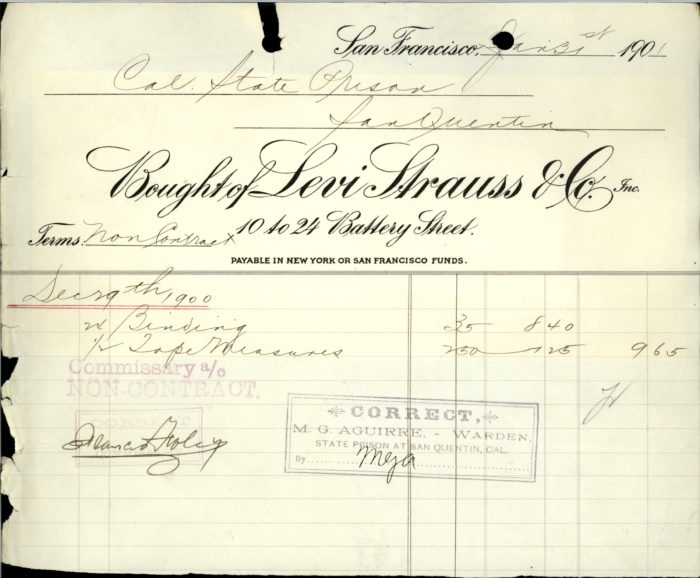 San Francisco, Jan 31st 1901
Cal. State Prison
San Quentin
Bought of Levi Strauss & Co. Inc.
10 to 24 Battery Street.
Terms Non Contract
PAYABLE IN NEW YORK OR SAN FRANCISCO FUNDS.
Dec 29th, 1900
24 Binding 35 840
1/2 Tape Measures 250 125 965
Commissary a/c
NON-CONTRACT.
CORRECT,
M. G. AGUIRRE, - WARDEN,
STATE PRISON AT SAN QUENTIN, CAL.
By MGA